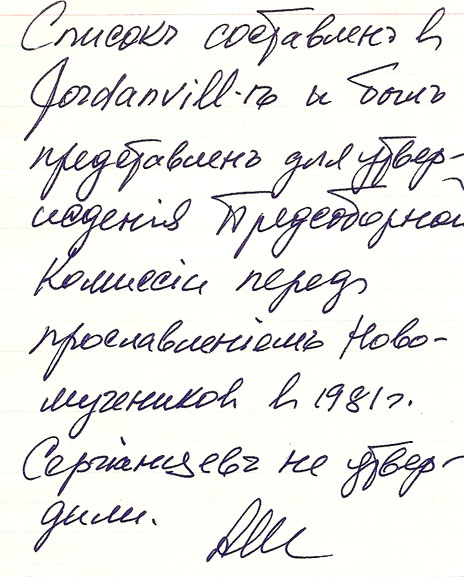 Списокъ составленъ в
Jordanvill-ѣ и былъ
представленъ для утвер-
жденія Предсоборной
Комиссіи передъ
прославленіемъ Ново-
мучеников в 1981 г.
Сергіанцевъ не утвер-
дили.